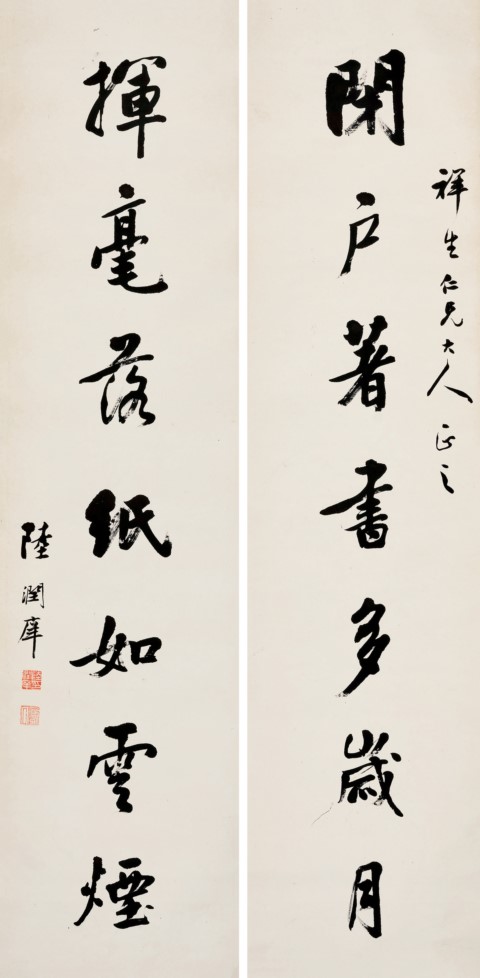 祥生仁兄大人正之
閉户著書多歲月
揮毫落紙如雲煙
陸潤庠